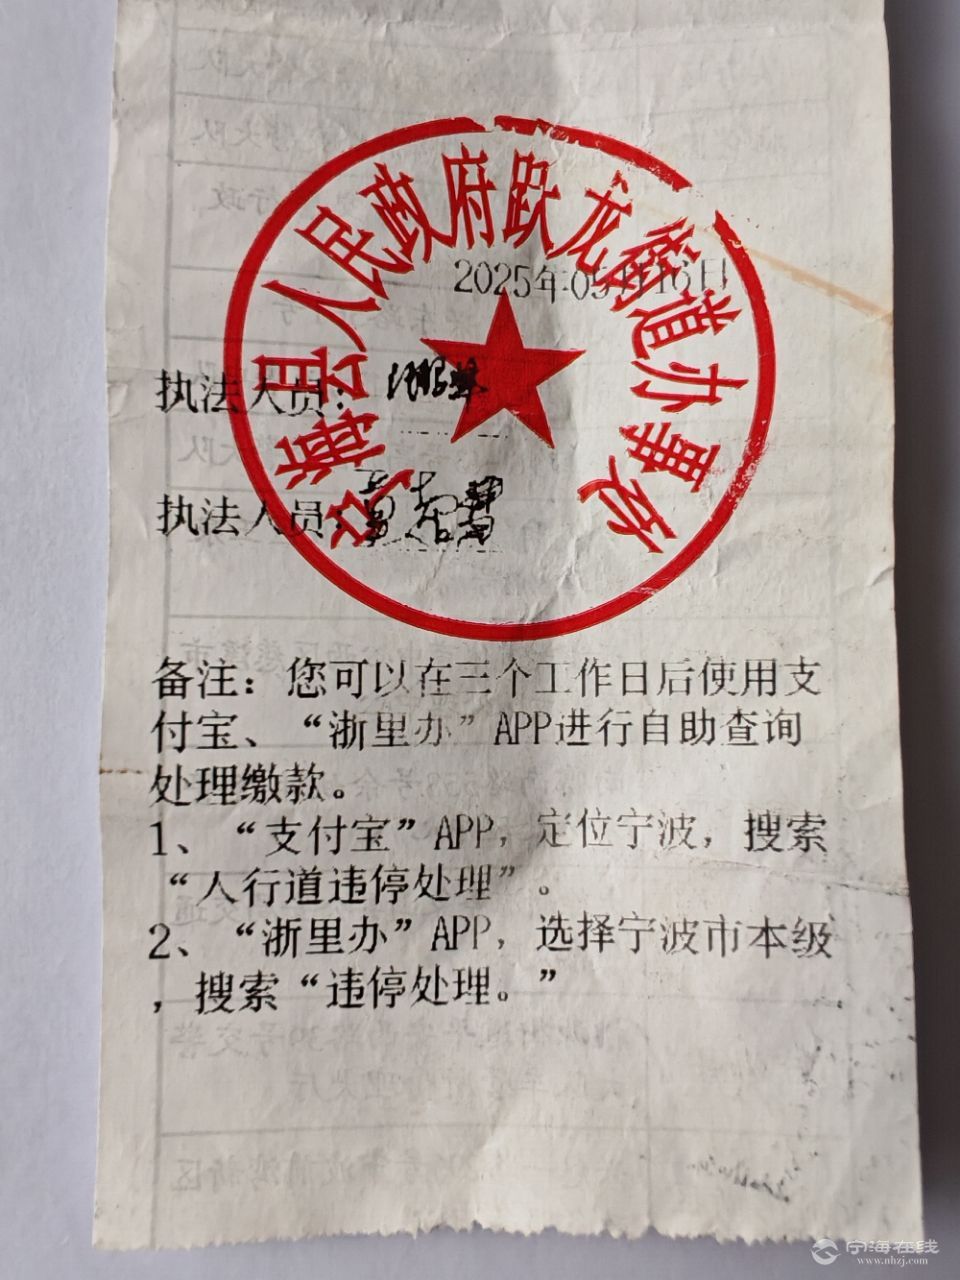 宁海县人民政府跃龙街道办事处
2025年05月16日
执法人员：
执法人员：
备注：您可以在三个工作日后使用支
付宝、“浙里办”APP进行自助查询
处理缴款。
1、“支付宝”APP，定位宁波，搜索
“人行道违停处理”。
2、“浙里办”APP，选择宁波市本级
，搜索“违停处理。”
宁海在线
www.nhzj.com